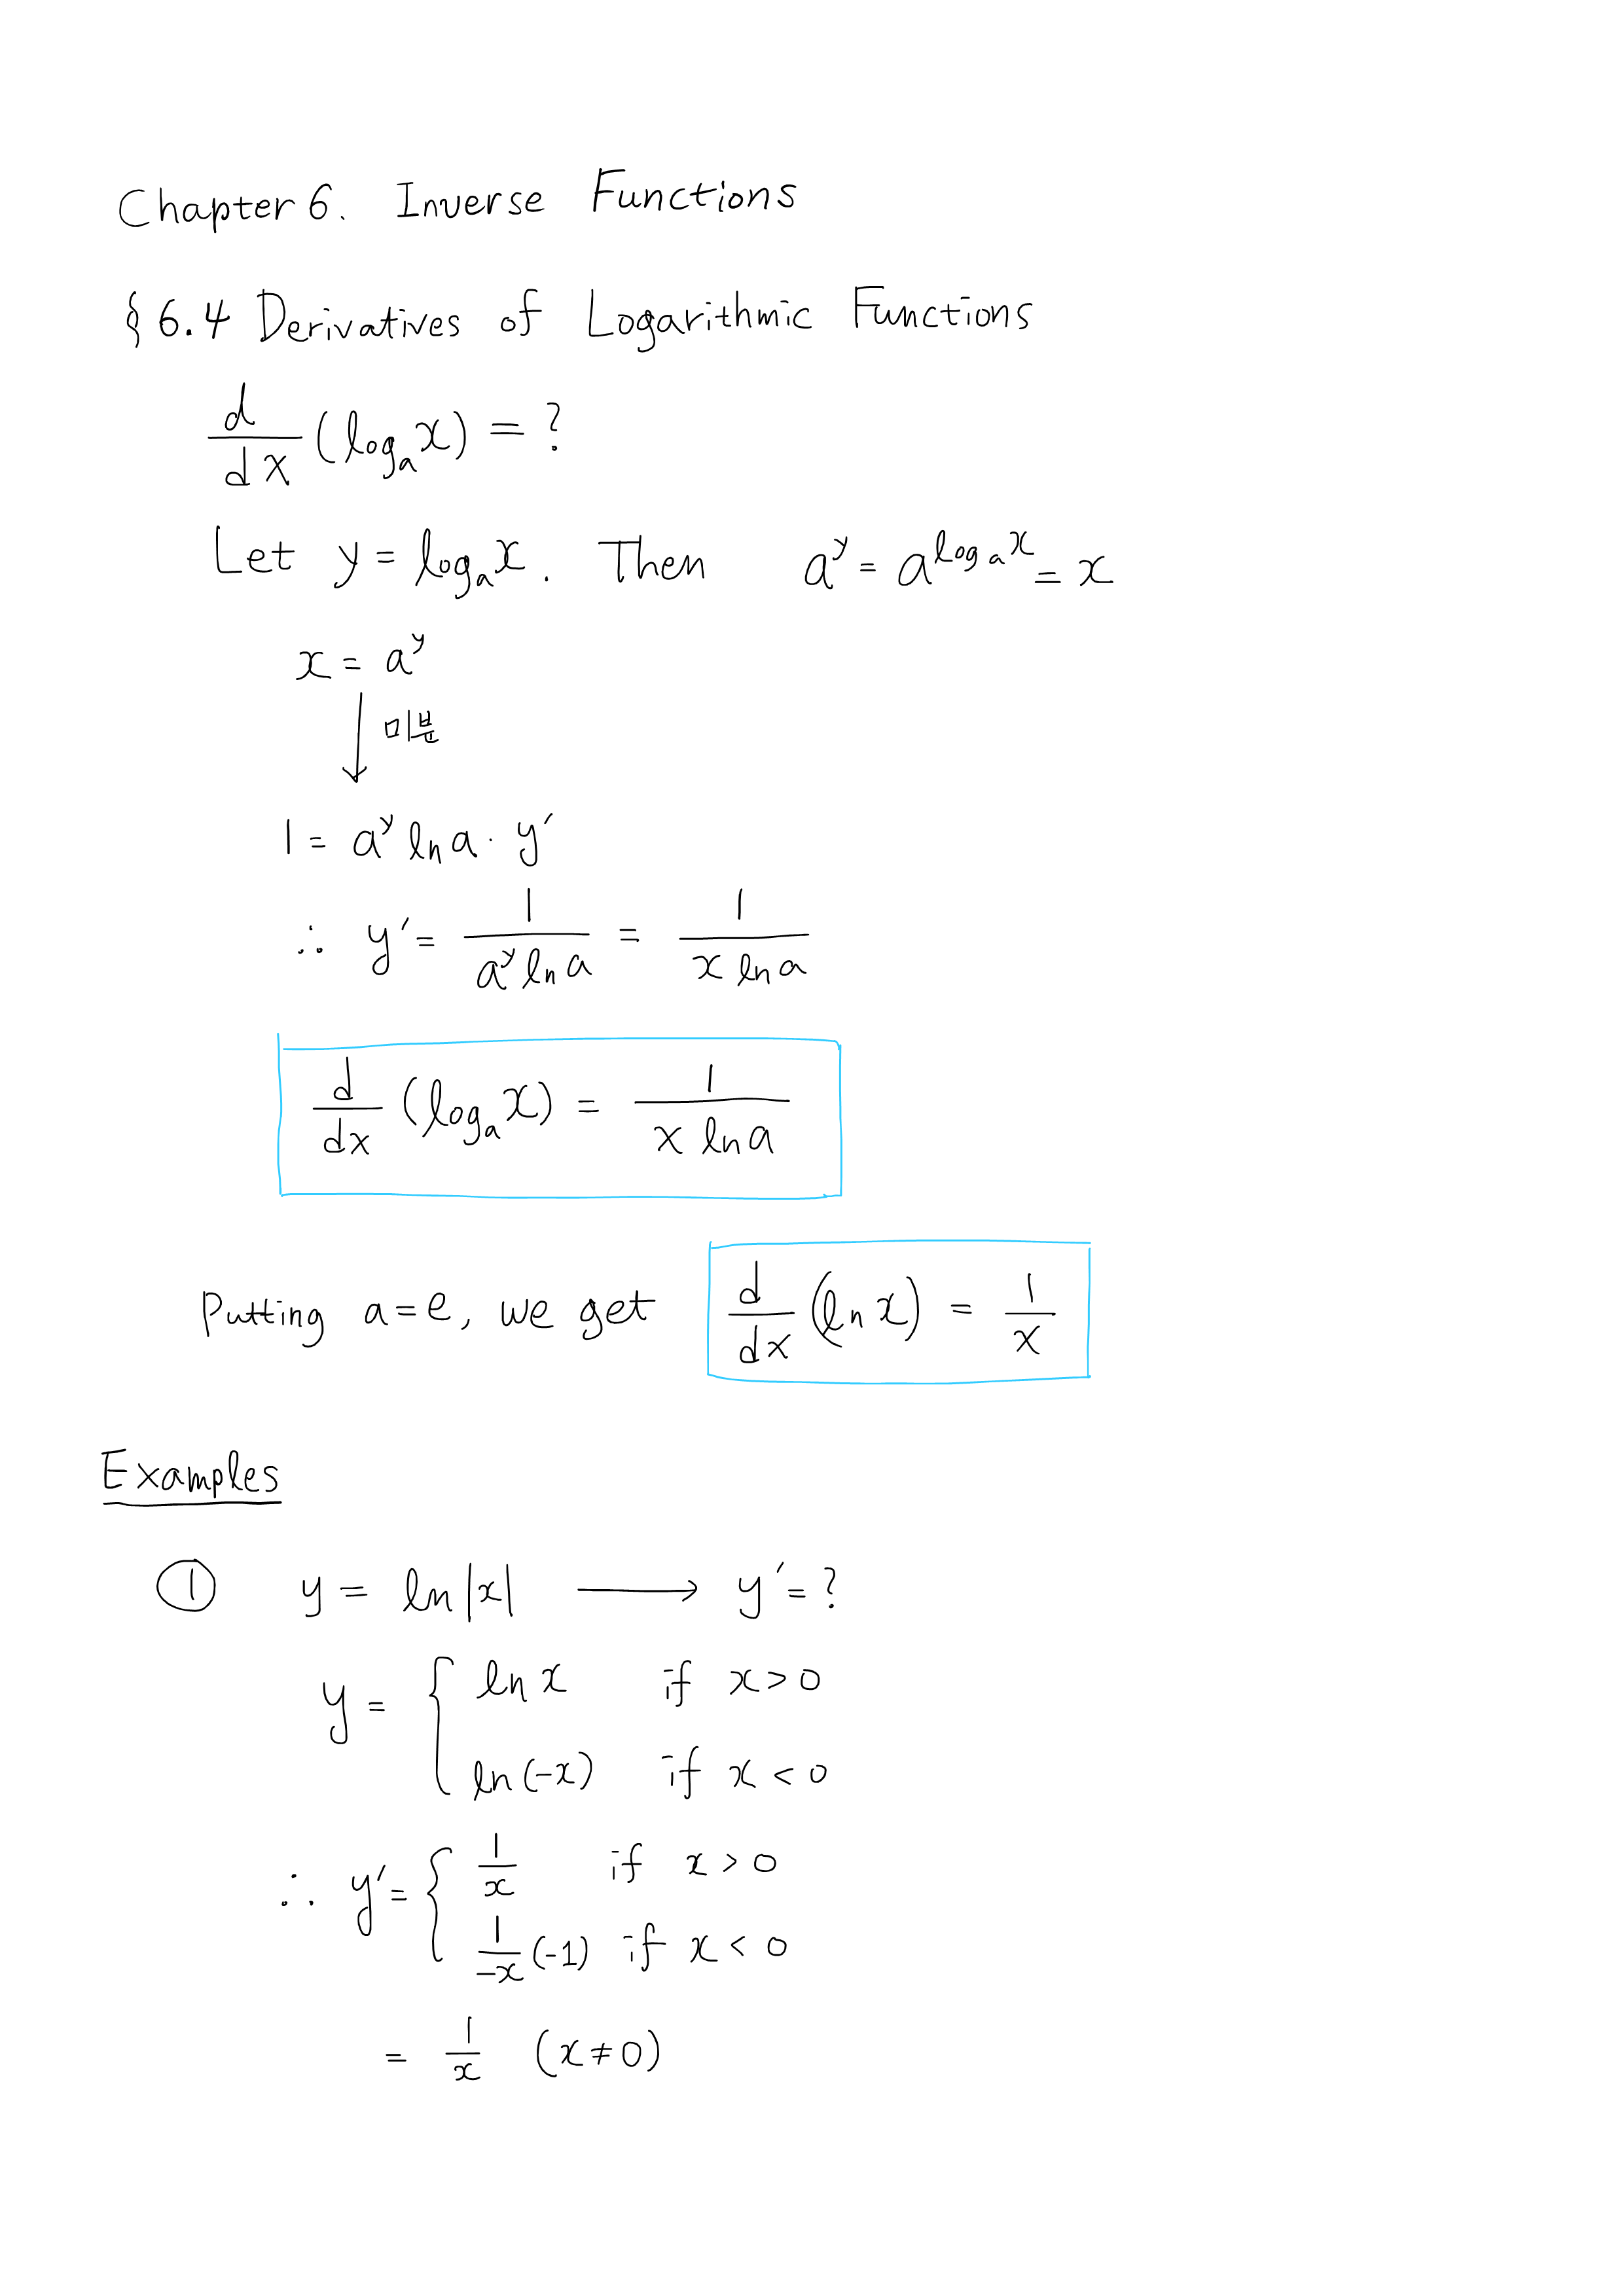 Chapter 6. Inverse Functions
§ 6.4 Derivatives of Logarithmic Functions
d/dx (logₐx) = ?
Let y = logₐx. Then a^y = a^(logₐx) = x
x = a^y
↓ 미분
1 = a^y ln a · y′
∴ y′ = 1/(a^y ln a) = 1/(x ln a)
d/dx (logₐx) = 1/(x ln a)
Putting a=e, we get d/dx (ln x) = 1/x
Examples
① y = ln|x| ⟶ y′ = ?
y = { ln x if x > 0
ln(-x) if x < 0
∴ y′ = { 1/x if x > 0
1/-x (-1) if x < 0
= 1/x (x ≠ 0)